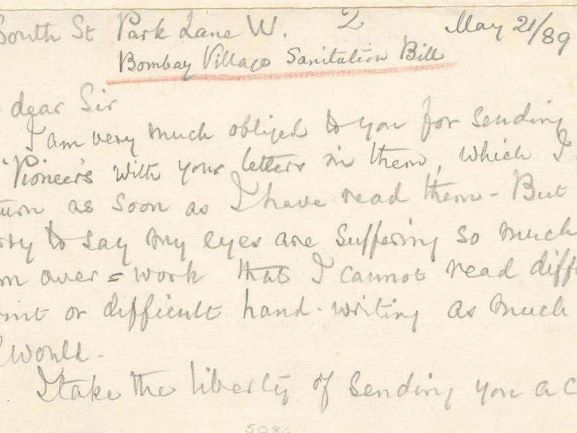 South St Park Lane W. 2 May 21/89
Bombay Village Sanitation Bill
dear Sir
I am very much obliged to you for sending
"Pioneers with your letters in them, which I
turn as soon as I have read them - But
rry to say my eyes are suffering so much
m over=work that I cannot read diff
int or difficult hand-writing as much
I would -
I take the liberty of sending you a c